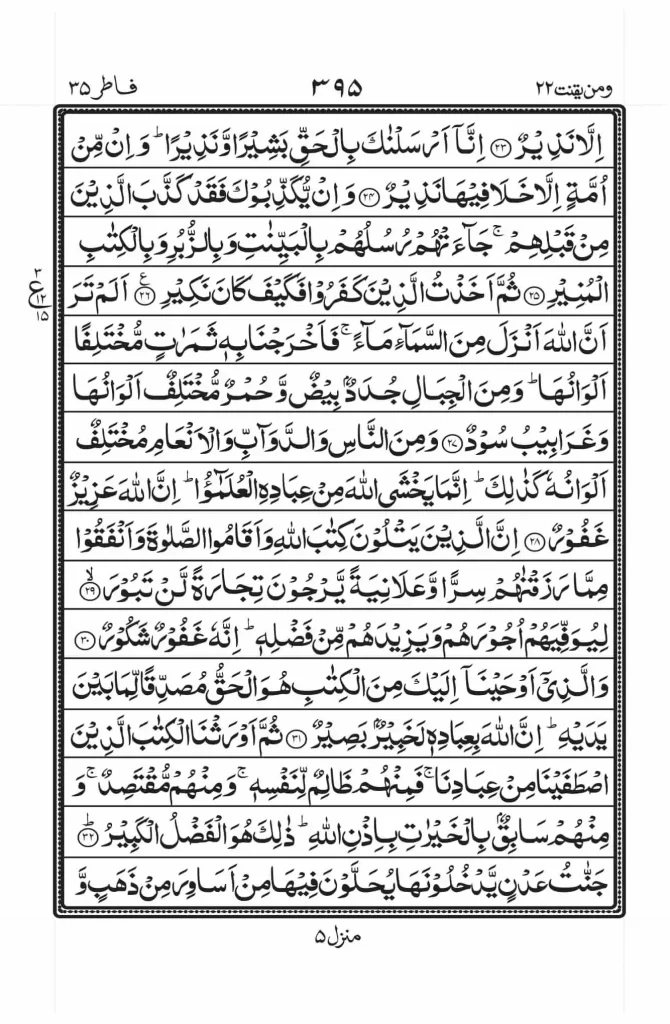 ومن يقنت ٢٢ ٣٩٥ فاطر ٣٥
اِلَّا نَذِيۡرٌ ﴿٢٣﴾ اِنَّاۤ اَرۡسَلۡنٰكَ بِالۡحَـقِّ بَشِيۡرًا وَّنَذِيۡرًا ؕ وَاِنۡ مِّنۡ
اُمَّةٍ اِلَّا خَلَا فِيۡهَا نَذِيۡرٌ ﴿٢٤﴾ وَاِنۡ يُّكَذِّبُوۡكَ فَقَدۡ كَذَّبَ الَّذِيۡنَ
مِنۡ قَبۡلِهِمۡ ۚ جَآءَتۡهُمۡ رُسُلُهُمۡ بِالۡبَيِّنٰتِ وَبِالزُّبُرِ وَبِالۡكِتٰبِ
الۡمُنِيۡرِ ﴿٢٥﴾ ثُمَّ اَخَذۡتُ الَّذِيۡنَ كَفَرُوۡا فَكَيۡفَ كَانَ نَكِيۡرِ ﴿٢٦﴾ ع اَلَمۡ تَرَ
٣ ع ١٢ ١٥
اَنَّ اللّٰهَ اَنۡزَلَ مِنَ السَّمَآءِ مَآءً ۚ فَاَخۡرَجۡنَا بِهٖ ثَمَرٰتٍ مُّخۡتَلِفًا
اَلۡوَانُهَا ؕ وَمِنَ الۡجِبَالِ جُدَدٌۢ بِيۡضٌ وَّحُمۡرٌ مُّخۡتَلِفٌ اَلۡوَانُهَا
وَغَرَابِيۡبُ سُوۡدٌ ﴿٢٧﴾ وَمِنَ النَّاسِ وَالدَّوَآبِّ وَالۡاَنۡعَامِ مُخۡتَلِفٌ
اَلۡوَانُهٗ كَذٰلِكَ ؕ اِنَّمَا يَخۡشَى اللّٰهَ مِنۡ عِبَادِهِ الۡعُلَمٰٓؤُا ؕ اِنَّ اللّٰهَ عَزِيۡزٌ
غَفُوۡرٌ ﴿٢٨﴾ اِنَّ الَّذِيۡنَ يَتۡلُوۡنَ كِتٰبَ اللّٰهِ وَاَقَامُوا الصَّلٰوةَ وَاَنۡفَقُوۡا
مِمَّا رَزَقۡنٰهُمۡ سِرًّا وَّعَلَانِيَةً يَّرۡجُوۡنَ تِجَارَةً لَّنۡ تَبُوۡرَ ۙ﴿٢٩﴾
لِيُوَفِّيَهُمۡ اُجُوۡرَهُمۡ وَيَزِيۡدَهُمۡ مِّنۡ فَضۡلِهٖ ؕ اِنَّهٗ غَفُوۡرٌ شَكُوۡرٌ ﴿٣٠﴾
وَالَّذِىۡۤ اَوۡحَيۡنَاۤ اِلَيۡكَ مِنَ الۡكِتٰبِ هُوَ الۡحَقُّ مُصَدِّقًا لِّمَا بَيۡنَ
يَدَيۡهِ ؕ اِنَّ اللّٰهَ بِعِبَادِهٖ لَخَبِيۡرٌۢ بَصِيۡرٌ ﴿٣١﴾ ثُمَّ اَوۡرَثۡنَا الۡكِتٰبَ الَّذِيۡنَ
اصۡطَفَيۡنَا مِنۡ عِبَادِنَا ۚ فَمِنۡهُمۡ ظَالِمٌ لِّنَفۡسِهٖ ۚ وَمِنۡهُمۡ مُّقۡتَصِدٌ ۚ وَ
مِنۡهُمۡ سَابِقٌۢ بِالۡخَيۡرٰتِ بِاِذۡنِ اللّٰهِ ؕ ذٰلِكَ هُوَ الۡفَضۡلُ الۡكَبِيۡرُ ؕ﴿٣٢﴾
جَنّٰتُ عَدۡنٍ يَّدۡخُلُوۡنَهَا يُحَلَّوۡنَ فِيۡهَا مِنۡ اَسَاوِرَ مِنۡ ذَهَبٍ وَّ
منزل ٥